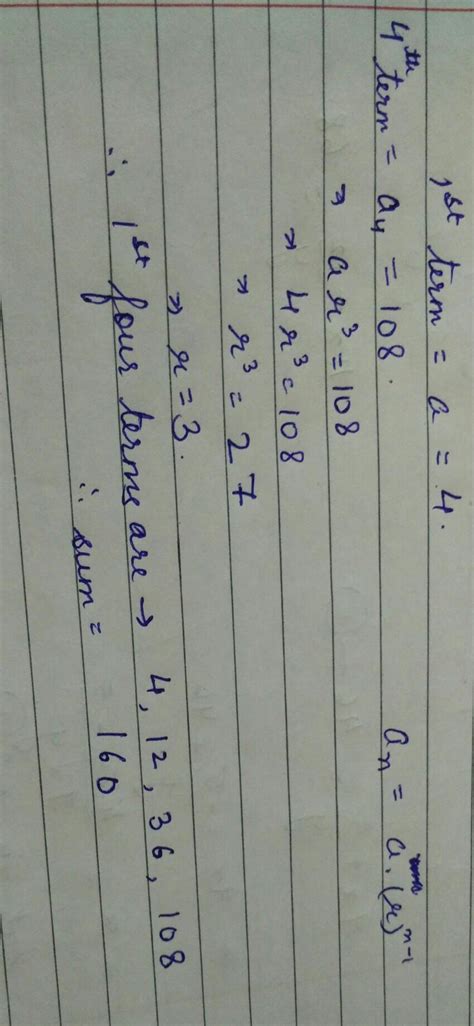 1st term = a = 4.
4th term = a₄ = 108.
aₙ = a.(r)ⁿ⁻¹
⇒ ar³ = 108
⇒ 4r³ = 108
⇒ r³ = 27
⇒ r = 3.
∴ 1st four terms are → 4, 12, 36, 108
∴ sum = 160